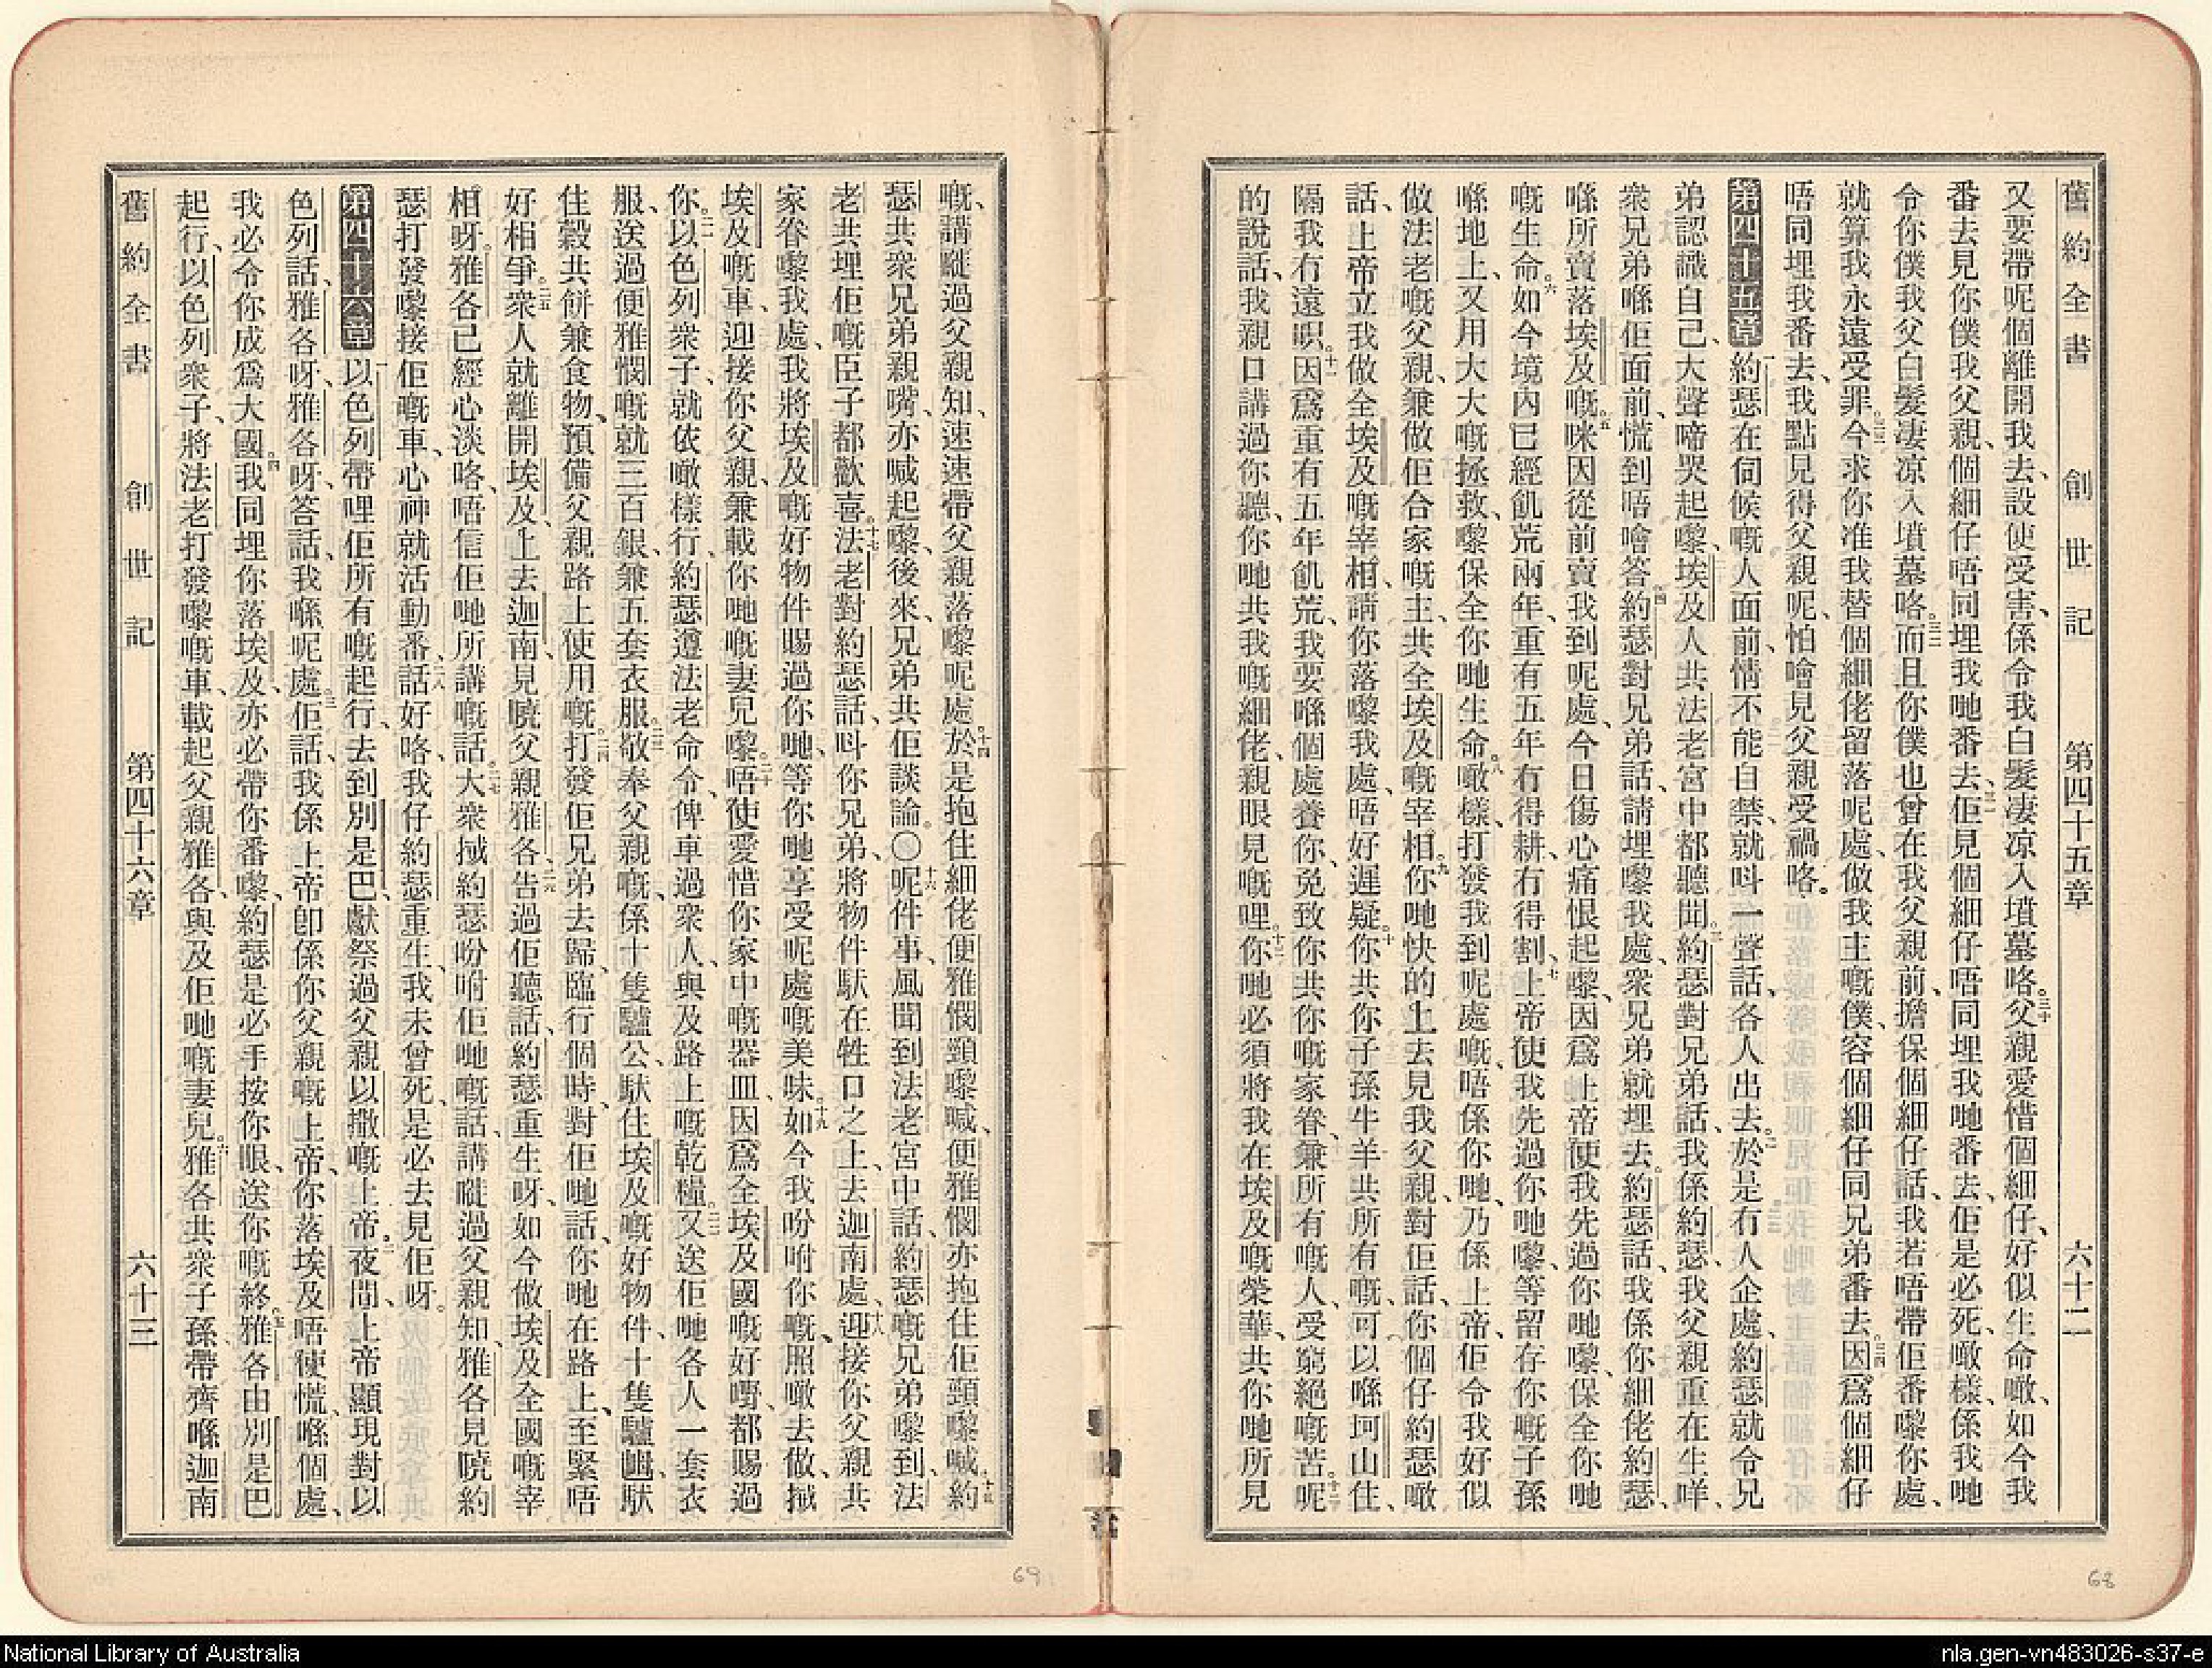 舊約全書 創世記 第四十五章 六十二
又要帶呢個離開我去、設使受害、係令我白髮凄凉入墳墓咯。三十父親愛惜個細仔、好似生命噉、如今我
番去見你僕我父親、個細仔唔同埋我哋番去、三一佢見個細仔唔同埋我哋番去、佢是必死、噉樣、係我哋
令你僕我父白髮凄凉入墳墓咯。三二而且你僕也曾在我父親前、擔保個細仔話、我若唔帶佢番嚟你處、
就算我永遠受罪。三三今求你准我替個細佬留落呢處、做我主嘅僕、容個細仔同兄弟番去。三四因爲個細仔
唔同埋我番去、我點見得父親呢、怕噲見父親受禍咯。
第四十五章 一約瑟在伺候嘅人面前、情不能自禁、就呌一聲話、各人出去。二於是冇人企處、約瑟就令兄
弟認識自己、大聲啼哭起嚟、埃及人共法老宮中都聽聞。三約瑟對兄弟話、我係約瑟、我父親重在生咩、
衆兄弟喺佢面前、慌到唔噲答。四約瑟對兄弟話、請埋嚟我處、衆兄弟就埋去。約瑟話、我係你細佬約瑟、
喺所賣落埃及嘅。五咪因從前賣我到呢處、今日傷心痛恨起嚟、因爲上帝使我先過你哋嚟、保全你哋
嘅生命。六如今境内已經飢荒兩年、重有五年冇得耕、冇得割、七上帝使我先過你哋嚟、等留存你嘅子孫
喺地上、又用大大嘅拯救、嚟保全你哋生命。八噉樣、打發我到呢處嘅、唔係你哋、乃係上帝、佢令我好似
做法老嘅父親、兼做佢合家嘅主、共全埃及嘅宰相。九你哋快的上去見我父親、對佢話、你個仔約瑟噉
話、上帝立我做全埃及嘅宰相、請你落嚟我處、唔好遲疑。十你共你子孫牛羊共所有嘅、可以喺坷山住、
隔我冇遠呮。十一因爲重有五年飢荒、我要喺個處養你、免致你共你嘅家眷、兼所有嘅人、受窮絕嘅苦。十二呢
的說話、我親口講過你聽、你哋共我嘅細佬、親眼見嘅哩。十三你哋必須將我在埃及嘅榮華、共你哋所見
嘅、講嘥過父親知、速速帶父親落嚟呢處。十四於是抱住細佬便雅憫頸嚟喊、便雅憫亦抱住佢頸嚟喊、十五約
瑟共衆兄弟親嘴、亦喊起嚟、後來兄弟共佢談論。〇十六呢件事、風聞到法老宮中話、約瑟嘅兄弟嚟到、法
老共埋佢嘅臣子都歡喜。十七法老對約瑟話、呌你兄弟、將物件馱在牲口之上、去迦南處、十八迎接你父親共
家眷嚟我處、我將埃及嘅好物件賜過你哋、等你哋享受呢處嘅美味。十九如今我吩咐你嘅、照噉去做、搣
埃及嘅車、迎接你父親、兼載你哋嘅妻兒嚟。二十唔使愛惜你家中嘅器皿、因爲全埃及國嘅好嘢、都賜過
你。二一以色列衆子、就依噉樣行、約瑟遵法老命令、俾車過衆人、與及路上嘅乾糧。二二又送佢哋各人一套衣
服、送過便雅憫嘅、就三百銀、兼五套衣服。二三敬奉父親嘅、係十隻驢公、馱住埃及嘅好物件、十隻驢乸、馱
住穀共餅兼食物、預備父親路上使用嘅。二四打發佢兄弟去歸、臨行個時、對佢哋話、你哋在路上、至緊唔
好相爭。二五衆人就離開埃及、上去迦南、見嘵父親雅各、二六告過佢聽話、約瑟重生呀、如今做埃及全國嘅宰
相呀。雅各已經心淡咯、唔信佢哋所講嘅話。二七大衆搣約瑟吩咐佢哋嘅話、講嘥過父親知、雅各見嘵約
瑟打發嚟接佢嘅車、心神就活動番、二八話好咯、我仔約瑟重生、我未曾死、是必去見佢呀。
第四十六章 一以色列帶哩佢所有嘅起行、去到別是巴、獻祭過父親以撒嘅上帝。二夜間、上帝顯現對以
色列話、雅各呀、雅各呀、答話、我喺呢處。三佢話、我係上帝、卽係你父親嘅上帝、你落埃及唔使慌、喺個處、
我必令你成爲大國。四我同埋你落埃及、亦必帶你番嚟、約瑟是必手按你眼、送你嘅終。五雅各由別是巴
起行、以色列衆子、將法老打發嚟嘅車、載起父親雅各、與及佢哋嘅妻兒。六雅各共衆子孫、帶齊喺迦南
舊約全書 創世記 第四十六章 六十三
68
69
National Library of Australia
nla.gen-vn483026-s37-e